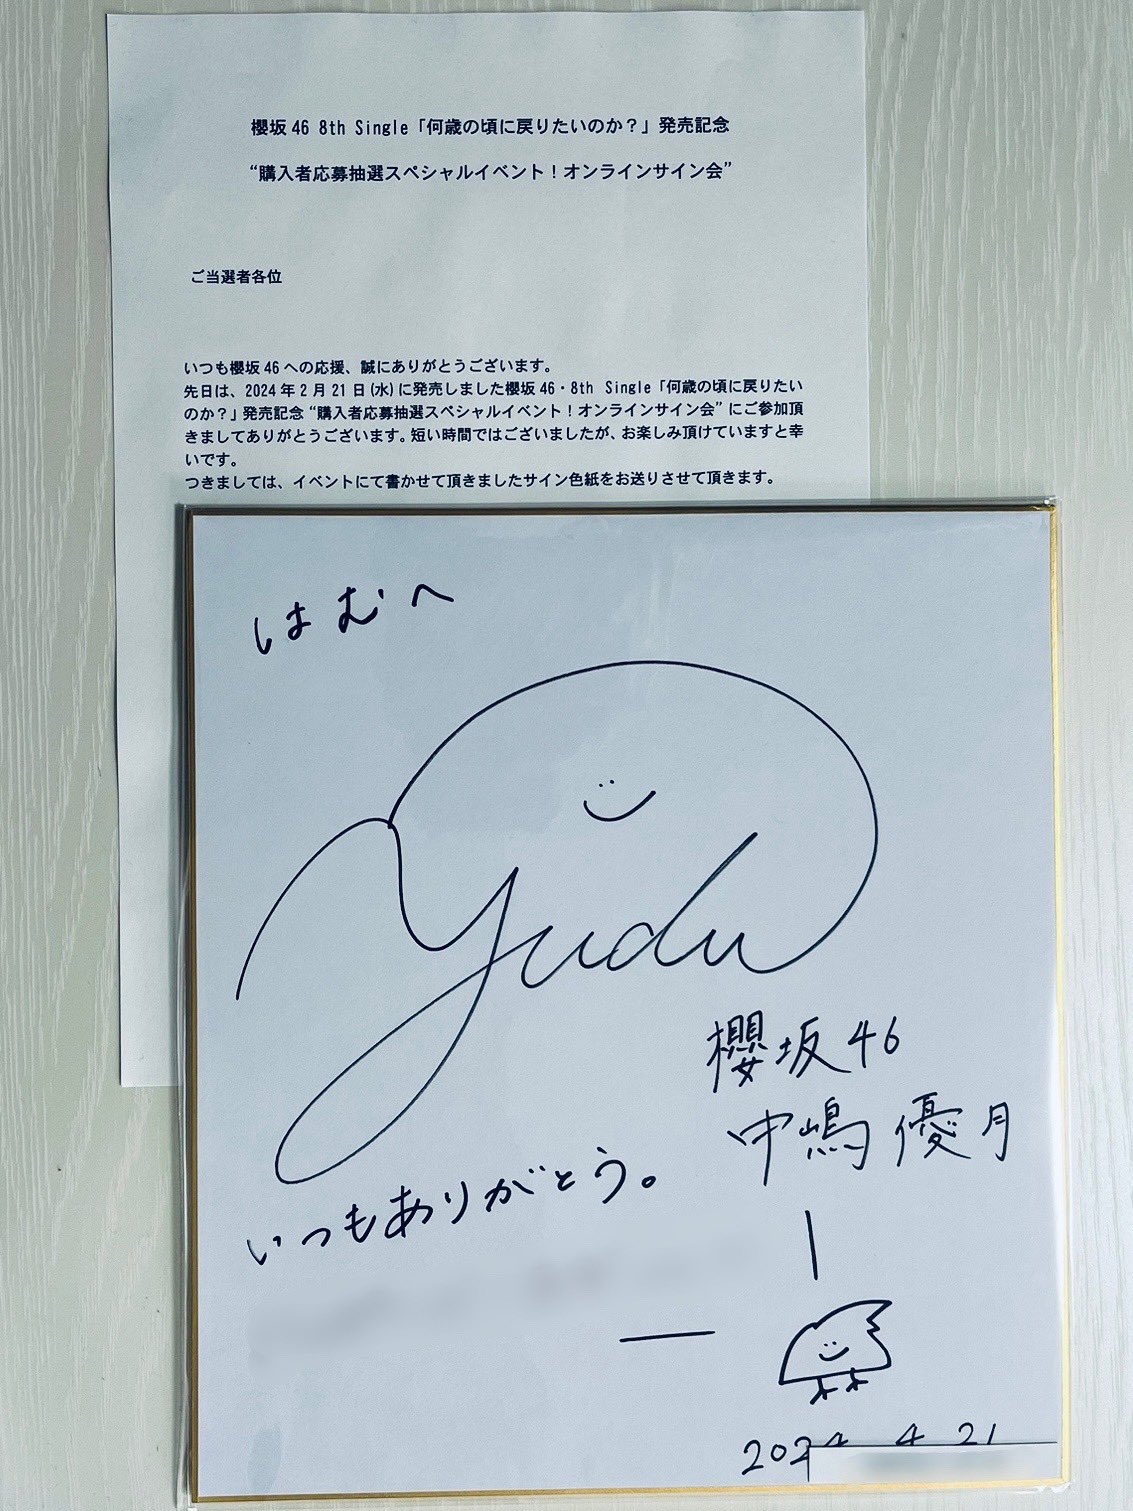 櫻坂46 8th Single「何歳の頃に戻りたいのか？」発売記念
“購入者応募抽選スペシャルイベント！オンラインサイン会”
ご当選者各位
いつも櫻坂46への応援、誠にありがとうございます。
先日は、2024年2月21日(水)に発売しました櫻坂46・8th Single「何歳の頃に戻りたい
のか？」発売記念“購入者応募抽選スペシャルイベント！オンラインサイン会”にご参加頂
きましてありがとうございます。短い時間ではございましたが、お楽しみ頂けていますと幸
いです。
つきましては、イベントにて書かせて頂きましたサイン色紙をお送りさせて頂きます。
はむへ
櫻坂46
中嶋優月
いつもありがとう。
2024 4 21